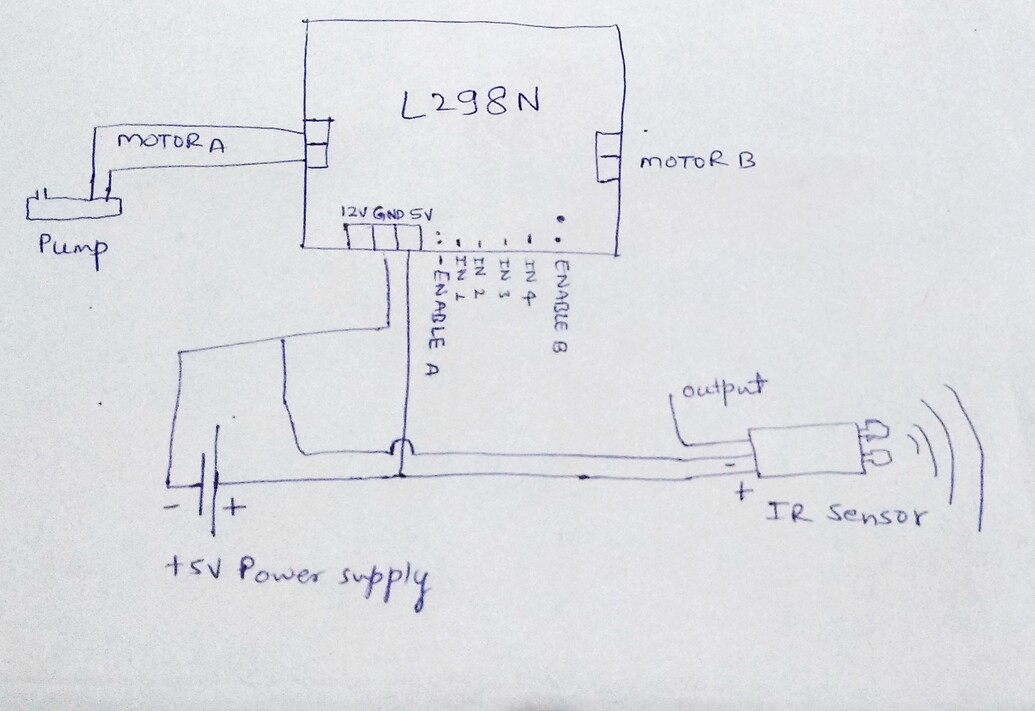 L298N
MOTOR A
MOTOR B
Pump
12V GND 5V
ENABLE A
IN 1
IN 2
IN 3
IN 4
ENABLE B
output
-
+
IR Sensor
- +
+5V Power supply